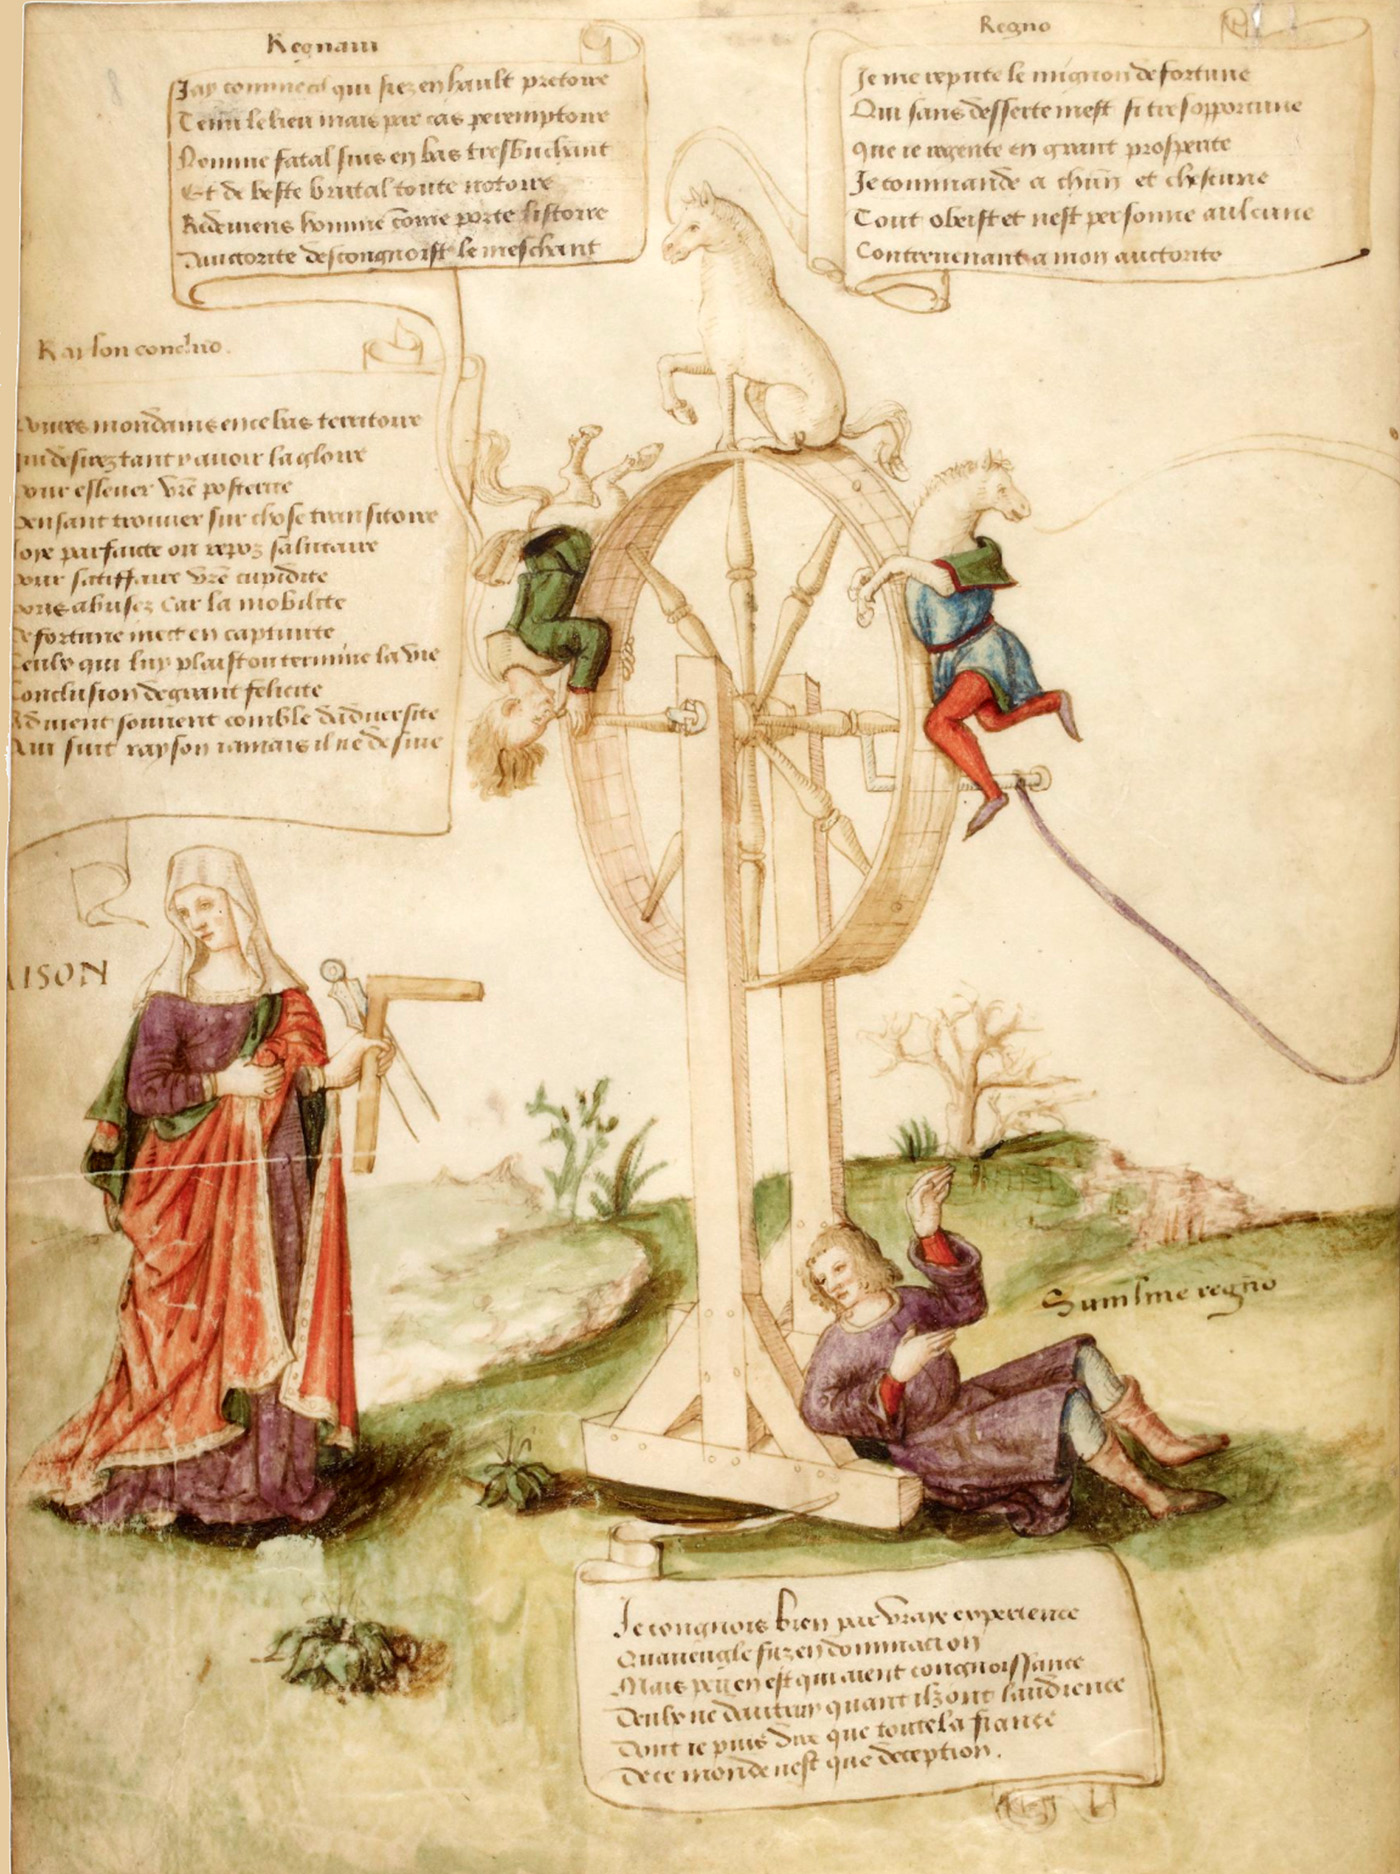 Regnaui
Jay commencé qui siez en hault pretoire
Tenu le lieu mais par cas peremptoire
Comme fatal suis en bas tresbuchant
Et de beste brutal toute notoire
Redeviens homme cōme porte listorre
Auctorite descongnoist le meschant
Regno
Je me repute le mignon de fortune
Qui sans desserte mest si tresopportune
Que ie regente en grant prosperite
Je commande a chūn et chescune
Tout obeist et nest personne aulcune
Contreuenant a mon auctorite
Raison concluo.
mondains en ce bas territoire
qui desirez tant y auoir la gloire
pour esleuer vrē posterite
pensant trouuer sur chose transitoire
Joye parfaicte ou repoz salutaire
pour satiffaire vrē cupidite
vous abusez Car la mobilite
de fortune mect en captiuite
Ceulx qui luy plaist ou termine la vie
Conclusion de grant felicite
Aduient souuent comble daduersite
Qui suit rayson iamais il ne desuie
AISON
Sum sine regno
Je congnois bien par vraye experience
Quaueugle fuz en dominacion
Mais peu en est qui aient congnoissance
Deulx ne dautruy quant ilz ont laudience
Dont ie puis dire que toute la fiance
De ce monde nest que deception.